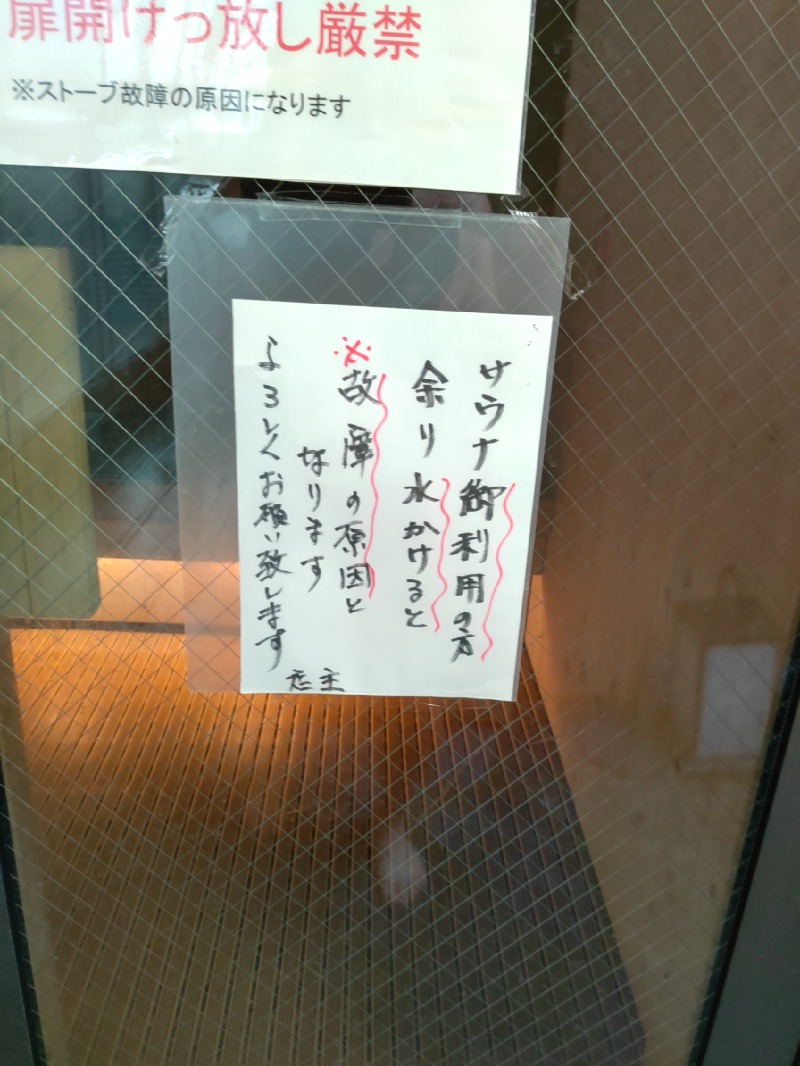 扉開けっ放し厳禁
※ストーブ故障の原因になります
サウナ御利用の方
余り水かけると
※故障の原因と
なります
よろしくお願い致します
店主